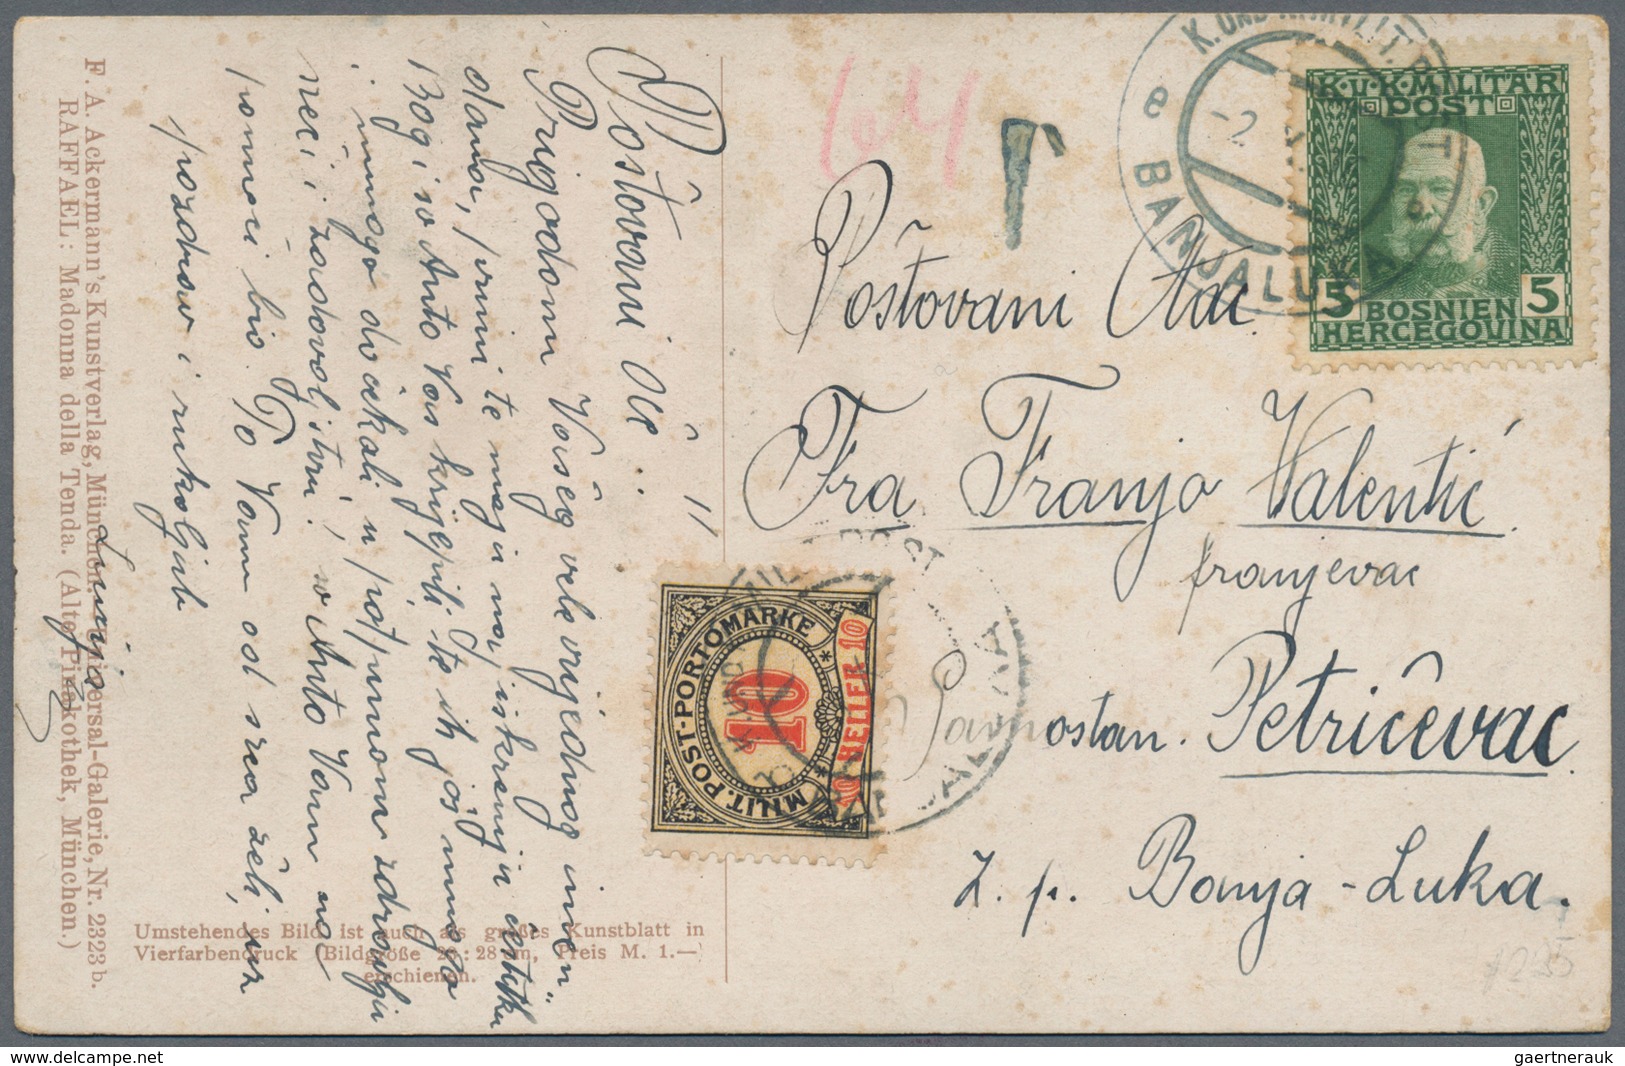 F. A. Ackermann's Kunstverlag, München. Universal-Galerie, Nr. 2323 b.
RAFFAEL: Madonna della Tenda. (Alte Pinakothek, München.)
Poštovani Oče
Prigodom Vašeg vele vrijednog imen-
dana, primite moju najiskreniju čestitku
Bog i sv Anto Vas krijepili te ih još mnogo
i mnogo dočekali u potpunom zdravlju
sreći i zadovoljstvu. sv Anto Vam na
pomoći bio. To Vam od srca želi, uz
pozdrav i rukoljub
Umstehendes Bild ist auch als großes Kunstblatt in
Vierfarbendruck (Bildgröße 20:28 cm, Preis M. 1.—)
erschienen.
64
T
Poštovani Otac
Fra Franjo Valentić
franjevac
samostan. Petrićevac
z. p. Banja-Luka.
K. UND K. MILIT. POST
e BANJALUKA
-2
K·U·K·MILITÄR
POST
5 BOSNIEN 5
HERCEGOVINA
MILIT. POST-PORTOMARKE
10
10 HELLER 10
delcampe.net
gaertnerauk